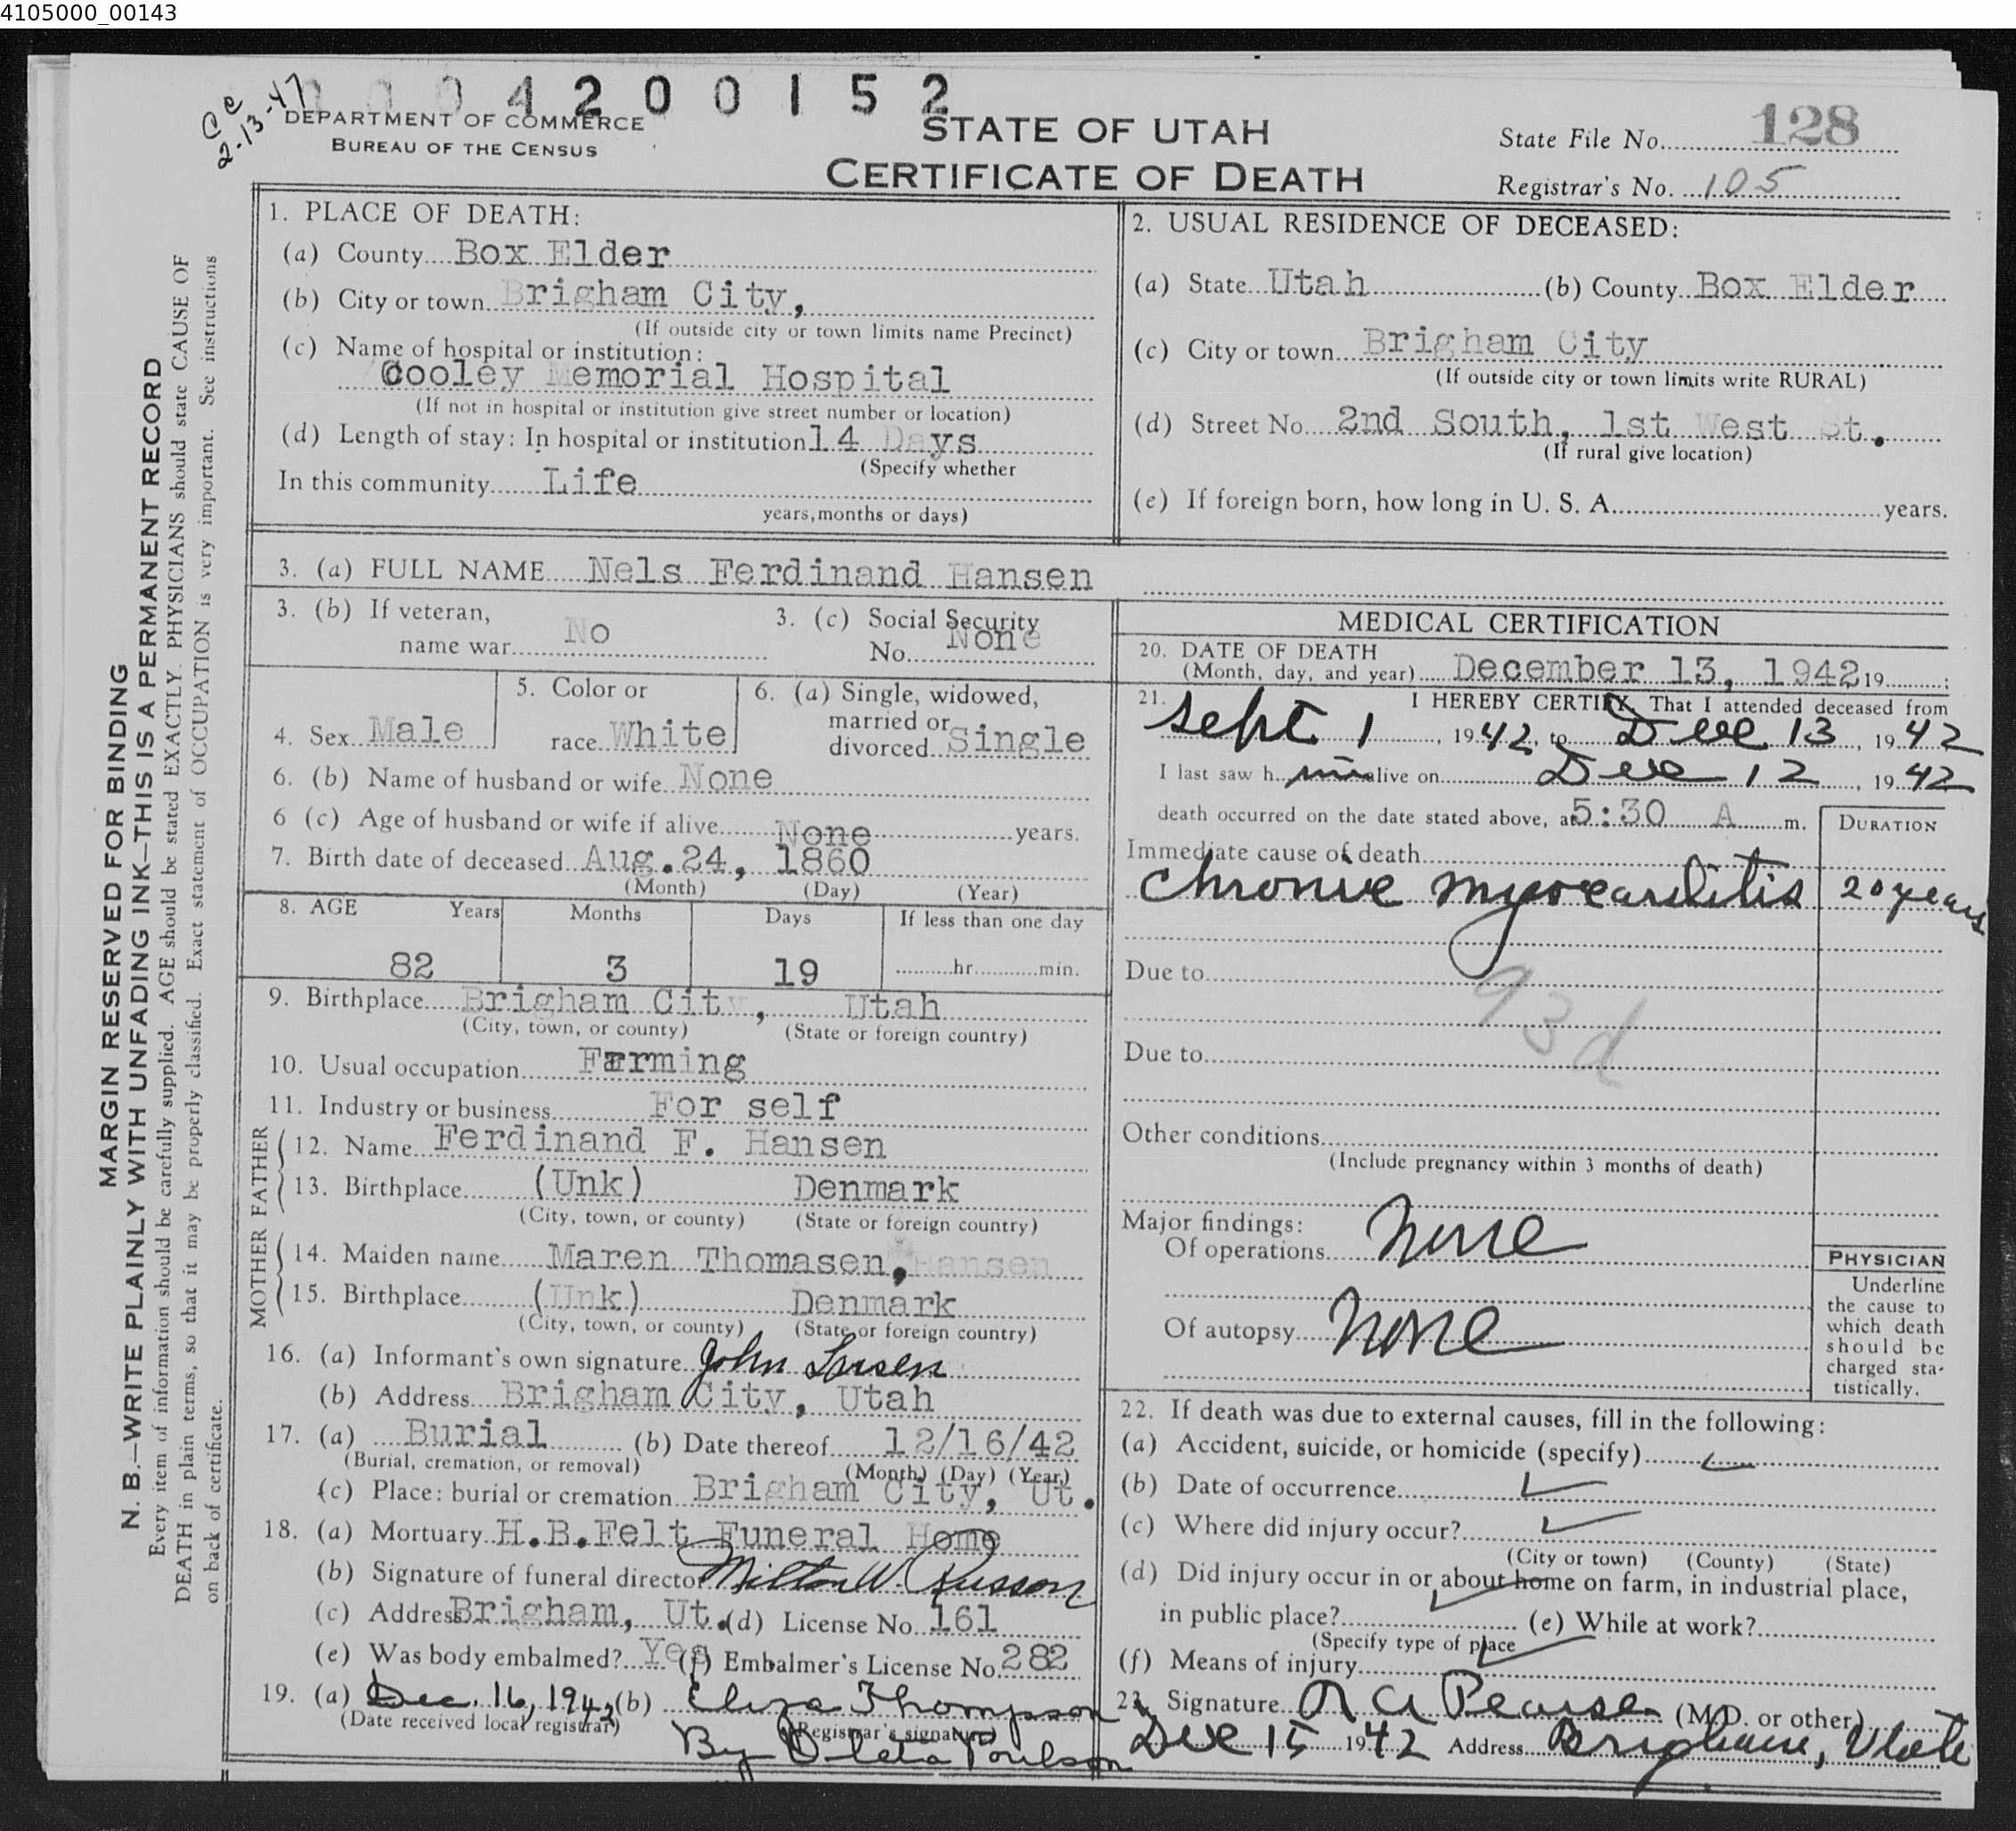 4105000_00143
0004200152
Cc
2-13-47
DEPARTMENT OF COMMERCE
BUREAU OF THE CENSUS
STATE OF UTAH
CERTIFICATE OF DEATH
State File No. 128
Registrar's No. 105
MARGIN RESERVED FOR BINDING
N. B.—WRITE PLAINLY WITH UNFADING INK—THIS IS A PERMANENT RECORD
Every item of information should be carefully supplied. AGE should be stated EXACTLY. PHYSICIANS should state CAUSE OF
DEATH in plain terms, so that it may be properly classified. Exact statement of OCCUPATION is very important. See instructions
on back of certificate.
1. PLACE OF DEATH:
(a) County Box Elder
(b) City or town Brigham City,
(If outside city or town limits name Precinct)
(c) Name of hospital or institution:
Cooley Memorial Hospital
(If not in hospital or institution give street number or location)
(d) Length of stay: In hospital or institution 14 Days
(Specify whether
In this community Life
years, months or days)
2. USUAL RESIDENCE OF DECEASED:
(a) State Utah (b) County Box Elder
(c) City or town Brigham City
(If outside city or town limits write RURAL)
(d) Street No. 2nd South, 1st West St.
(If rural give location)
(e) If foreign born, how long in U. S. A. years.
3. (a) FULL NAME Nels Ferdinand Hansen
3. (b) If veteran,
name war No
3. (c) Social Security
No. None
4. Sex Male
5. Color or
race White
6. (a) Single, widowed,
married or
divorced Single
6. (b) Name of husband or wife None
6 (c) Age of husband or wife if alive None years.
7. Birth date of deceased Aug. 24, 1860
(Month) (Day) (Year)
8. AGE Years Months Days If less than one day
82 3 19 hr. min.
9. Birthplace Brigham City, Utah
(City, town, or county) (State or foreign country)
10. Usual occupation Farming
11. Industry or business For self
FATHER
12. Name Ferdinand F. Hansen
13. Birthplace (Unk) Denmark
(City, town, or county) (State or foreign country)
MOTHER
14. Maiden name Maren Thomasen, Hansen
15. Birthplace (Unk) Denmark
(City, town, or county) (State or foreign country)
16. (a) Informant's own signature John
(b) Address Brigham City, Utah
17. (a) Burial (b) Date thereof 12/16/42
(Burial, cremation, or removal) (Month) (Day) (Year)
(c) Place: burial or cremation Brigham City, Ut.
18. (a) Mortuary H.B.Felt Funeral Home
(b) Signature of funeral director Milton W.
(c) Address Brigham, Ut. (d) License No. 161
(e) Was body embalmed? Yes (f) Embalmer's License No. 282
19. (a) Dec. 16, 1942 (b) Eliza Thompson
(Date received local registrar) (Registrar's signature)
By Oleta Poulson
MEDICAL CERTIFICATION
20. DATE OF DEATH
(Month, day, and year) December 13, 1942 19 ;
21. I HEREBY CERTIFY, That I attended deceased from
Sept. 1, 1942, to Dec 13, 1942
I last saw him alive on Dec 12, 1942
death occurred on the date stated above, at 5:30 A m.
DURATION
Immediate cause of death
Chronic myocarditis 20 years
Due to
93d
Due to
Other conditions
(Include pregnancy within 3 months of death)
Major findings:
Of operations none
Of autopsy none
PHYSICIAN
Underline
the cause to
which death
should be
charged sta-
tistically.
22. If death was due to external causes, fill in the following:
(a) Accident, suicide, or homicide (specify)
(b) Date of occurrence
(c) Where did injury occur?
(City or town) (County) (State)
(d) Did injury occur in or about home on farm, in industrial place,
in public place? (e) While at work?
(Specify type of place
(f) Means of injury
23. Signature Pearse (M.D. or other)
Dec 15 1942 Address Brigham, Utah